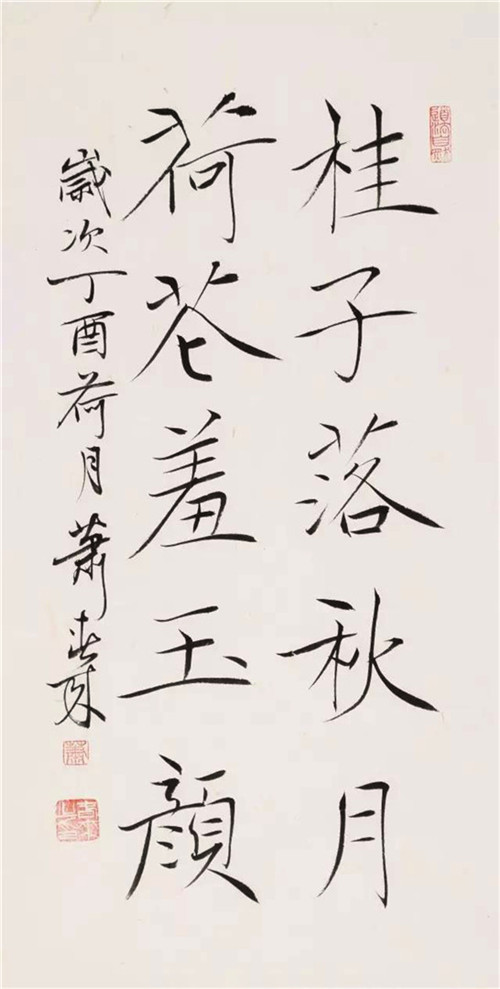 桂子落秋月
荷花羞玉颜
歲次丁酉荷月蕭春